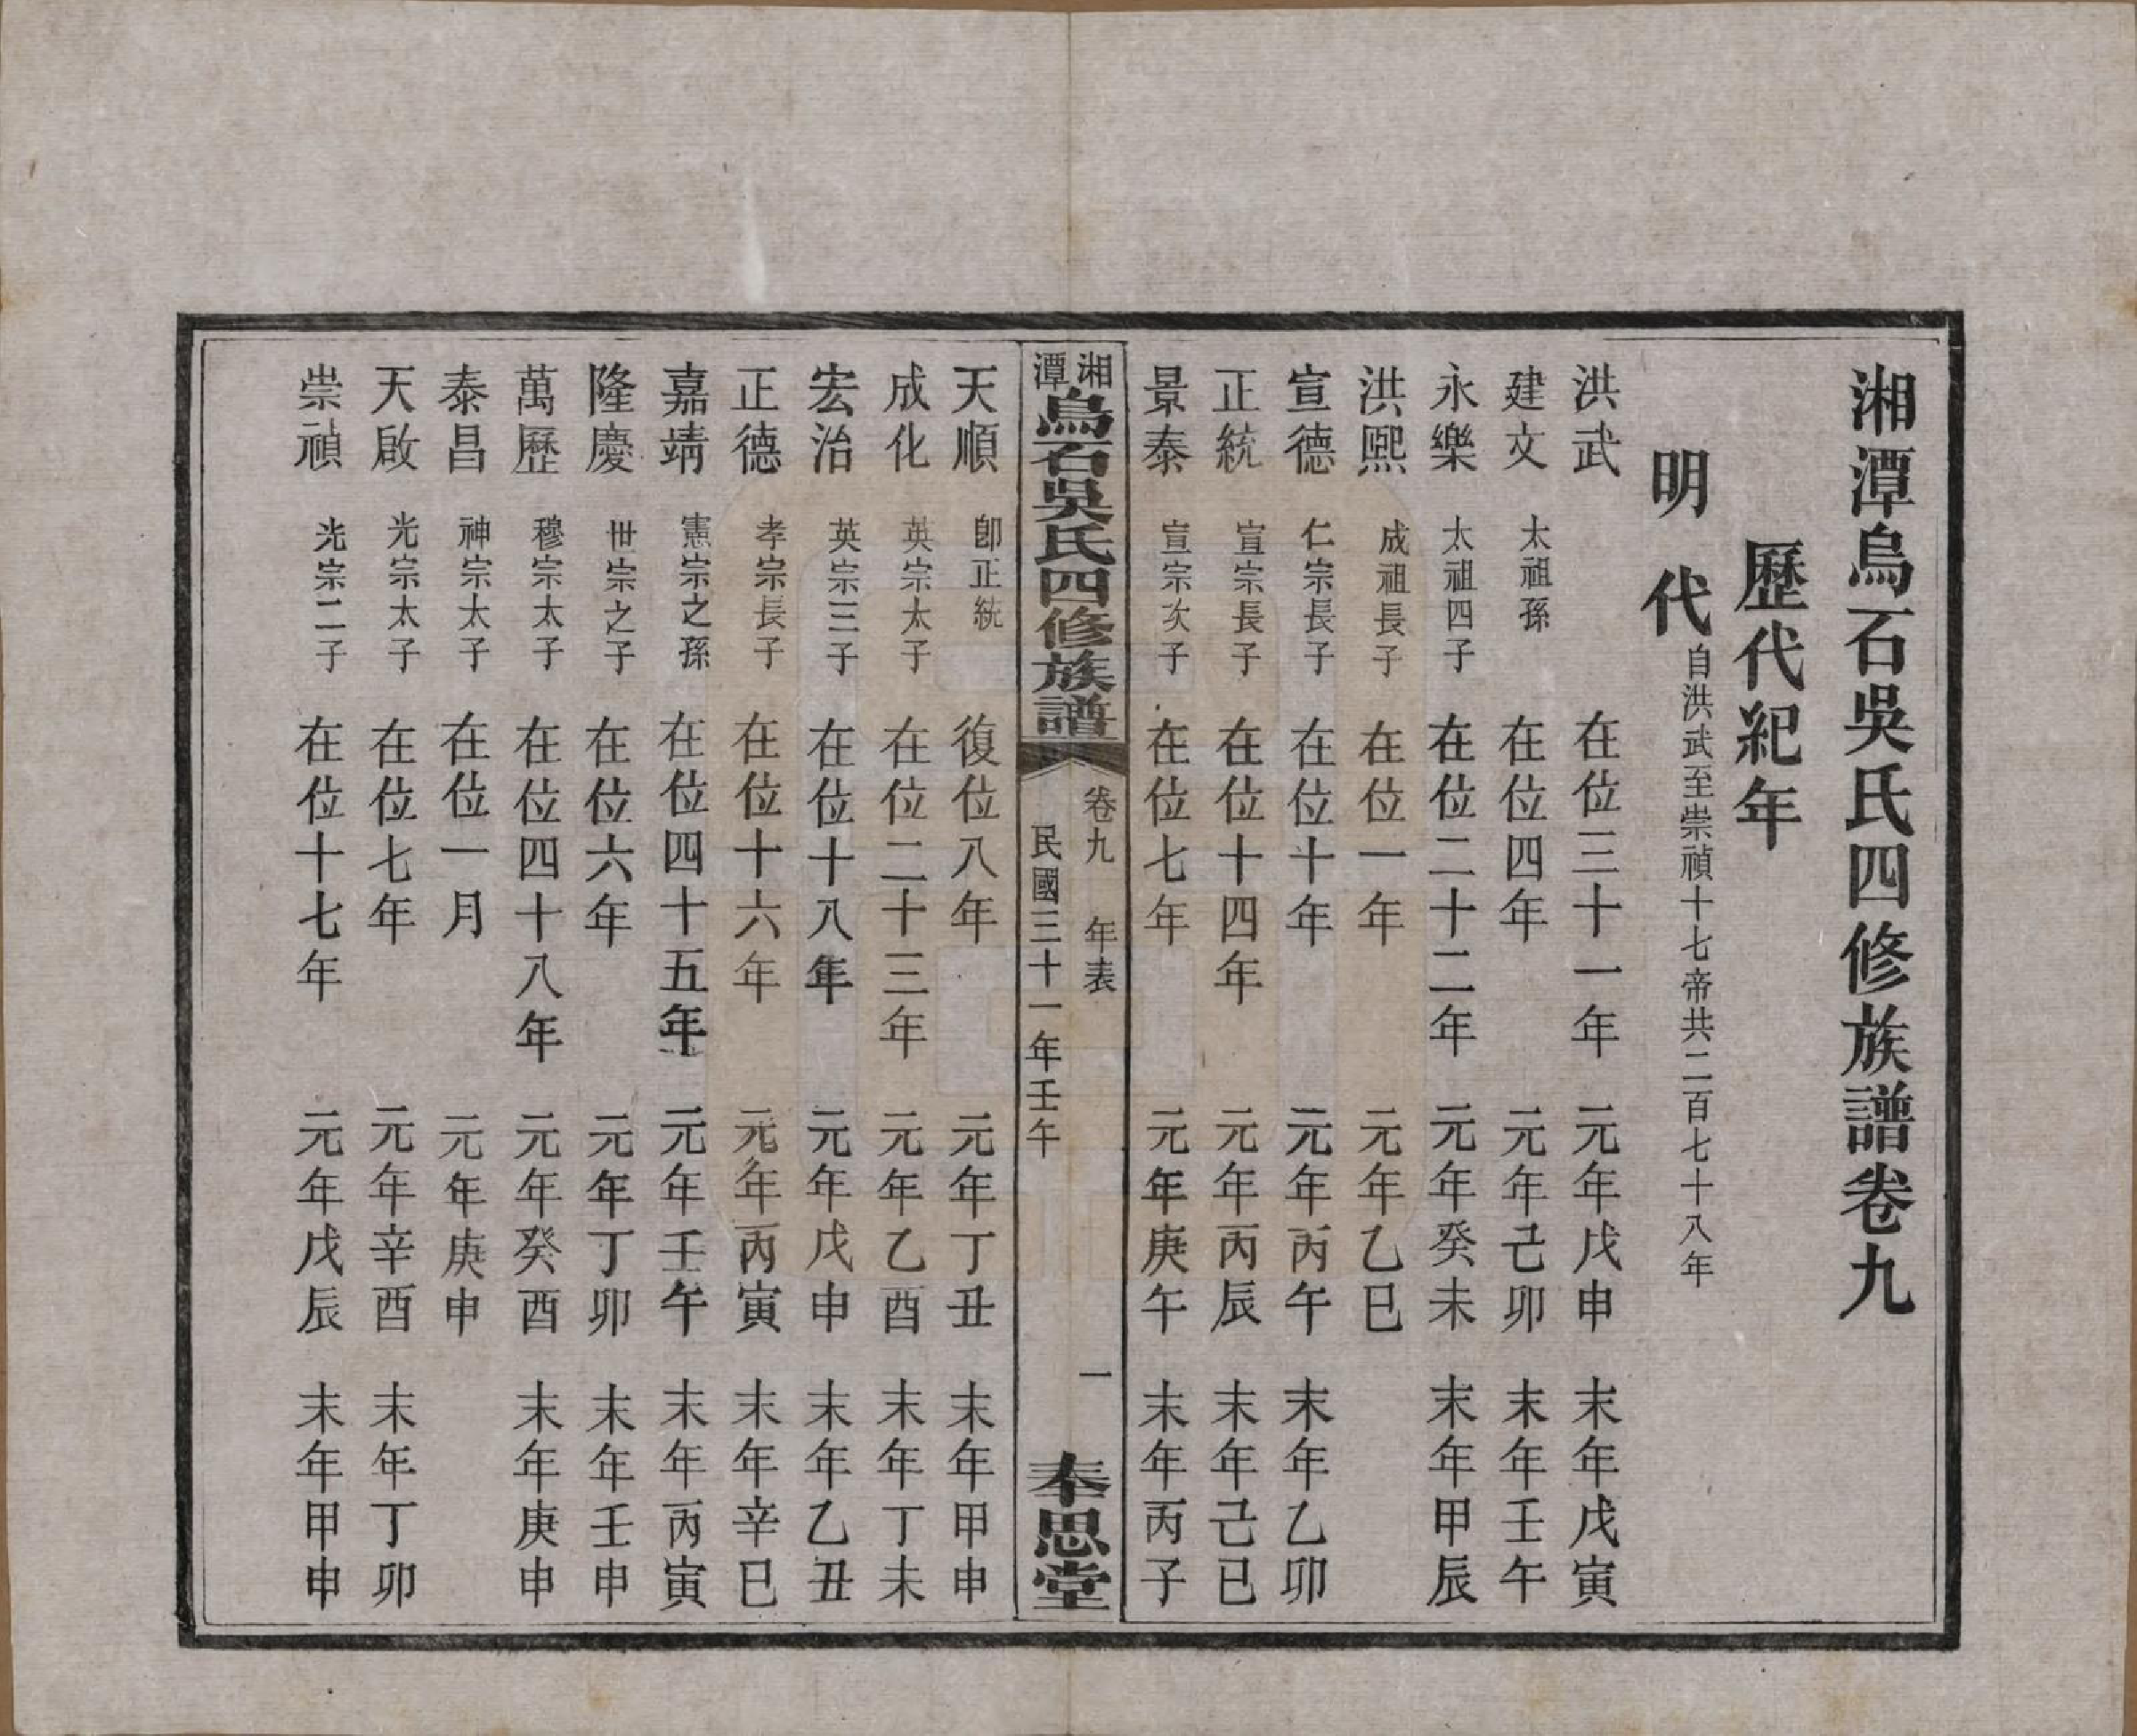 湘潭烏石吳氏四修族譜卷九
歷代紀年
明代 自洪武至崇禎十七帝共二百七十八年
洪武 在位三十一年 元年戊申 末年戊寅
建文 太祖孫 在位四年 元年己卯 末年壬午
永樂 太祖四子 在位二十二年 元年癸未 末年甲辰
洪熙 成祖長子 在位一年 元年乙巳
宣德 仁宗長子 在位十年 元年丙午 末年乙卯
正統 宣宗長子 在位十四年 元年丙辰 末年己巳
景泰 宣宗次子 在位七年 元年庚午 末年丙子
湘潭烏石吳氏四修族譜 卷九 年表 一
民國三十一年壬午 奉思堂
天順 卽正統 復位八年 元年丁丑 末年甲申
成化 英宗太子 在位二十三年 元年乙酉 末年丁未
宏治 英宗三子 在位十八年 元年戊申 末年乙丑
正德 孝宗長子 在位十六年 元年丙寅 末年辛巳
嘉靖 憲宗之孫 在位四十五年 元年壬午 末年丙寅
隆慶 世宗之子 在位六年 元年丁卯 末年壬申
萬歷 穆宗太子 在位四十八年 元年癸酉 末年庚申
泰昌 神宗太子 在位一月 元年庚申
天啟 光宗太子 在位七年 元年辛酉 末年丁卯
崇禎 光宗二子 在位十七年 元年戊辰 末年甲申